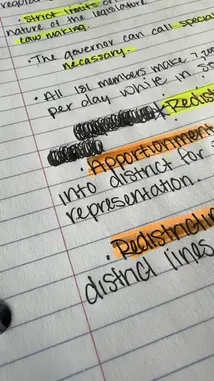 · Strict limits
nature of the legislature
law making.
· The governor can call special
necessary.
· All 181 members make 7,20
per day while in
Redist
· Apportionment
into district for
representation.
· Redistricting
district lines